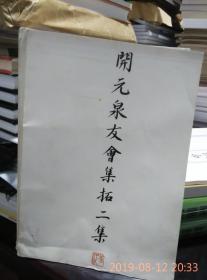 開元泉友會集拓二集
2019-08-12 20:33